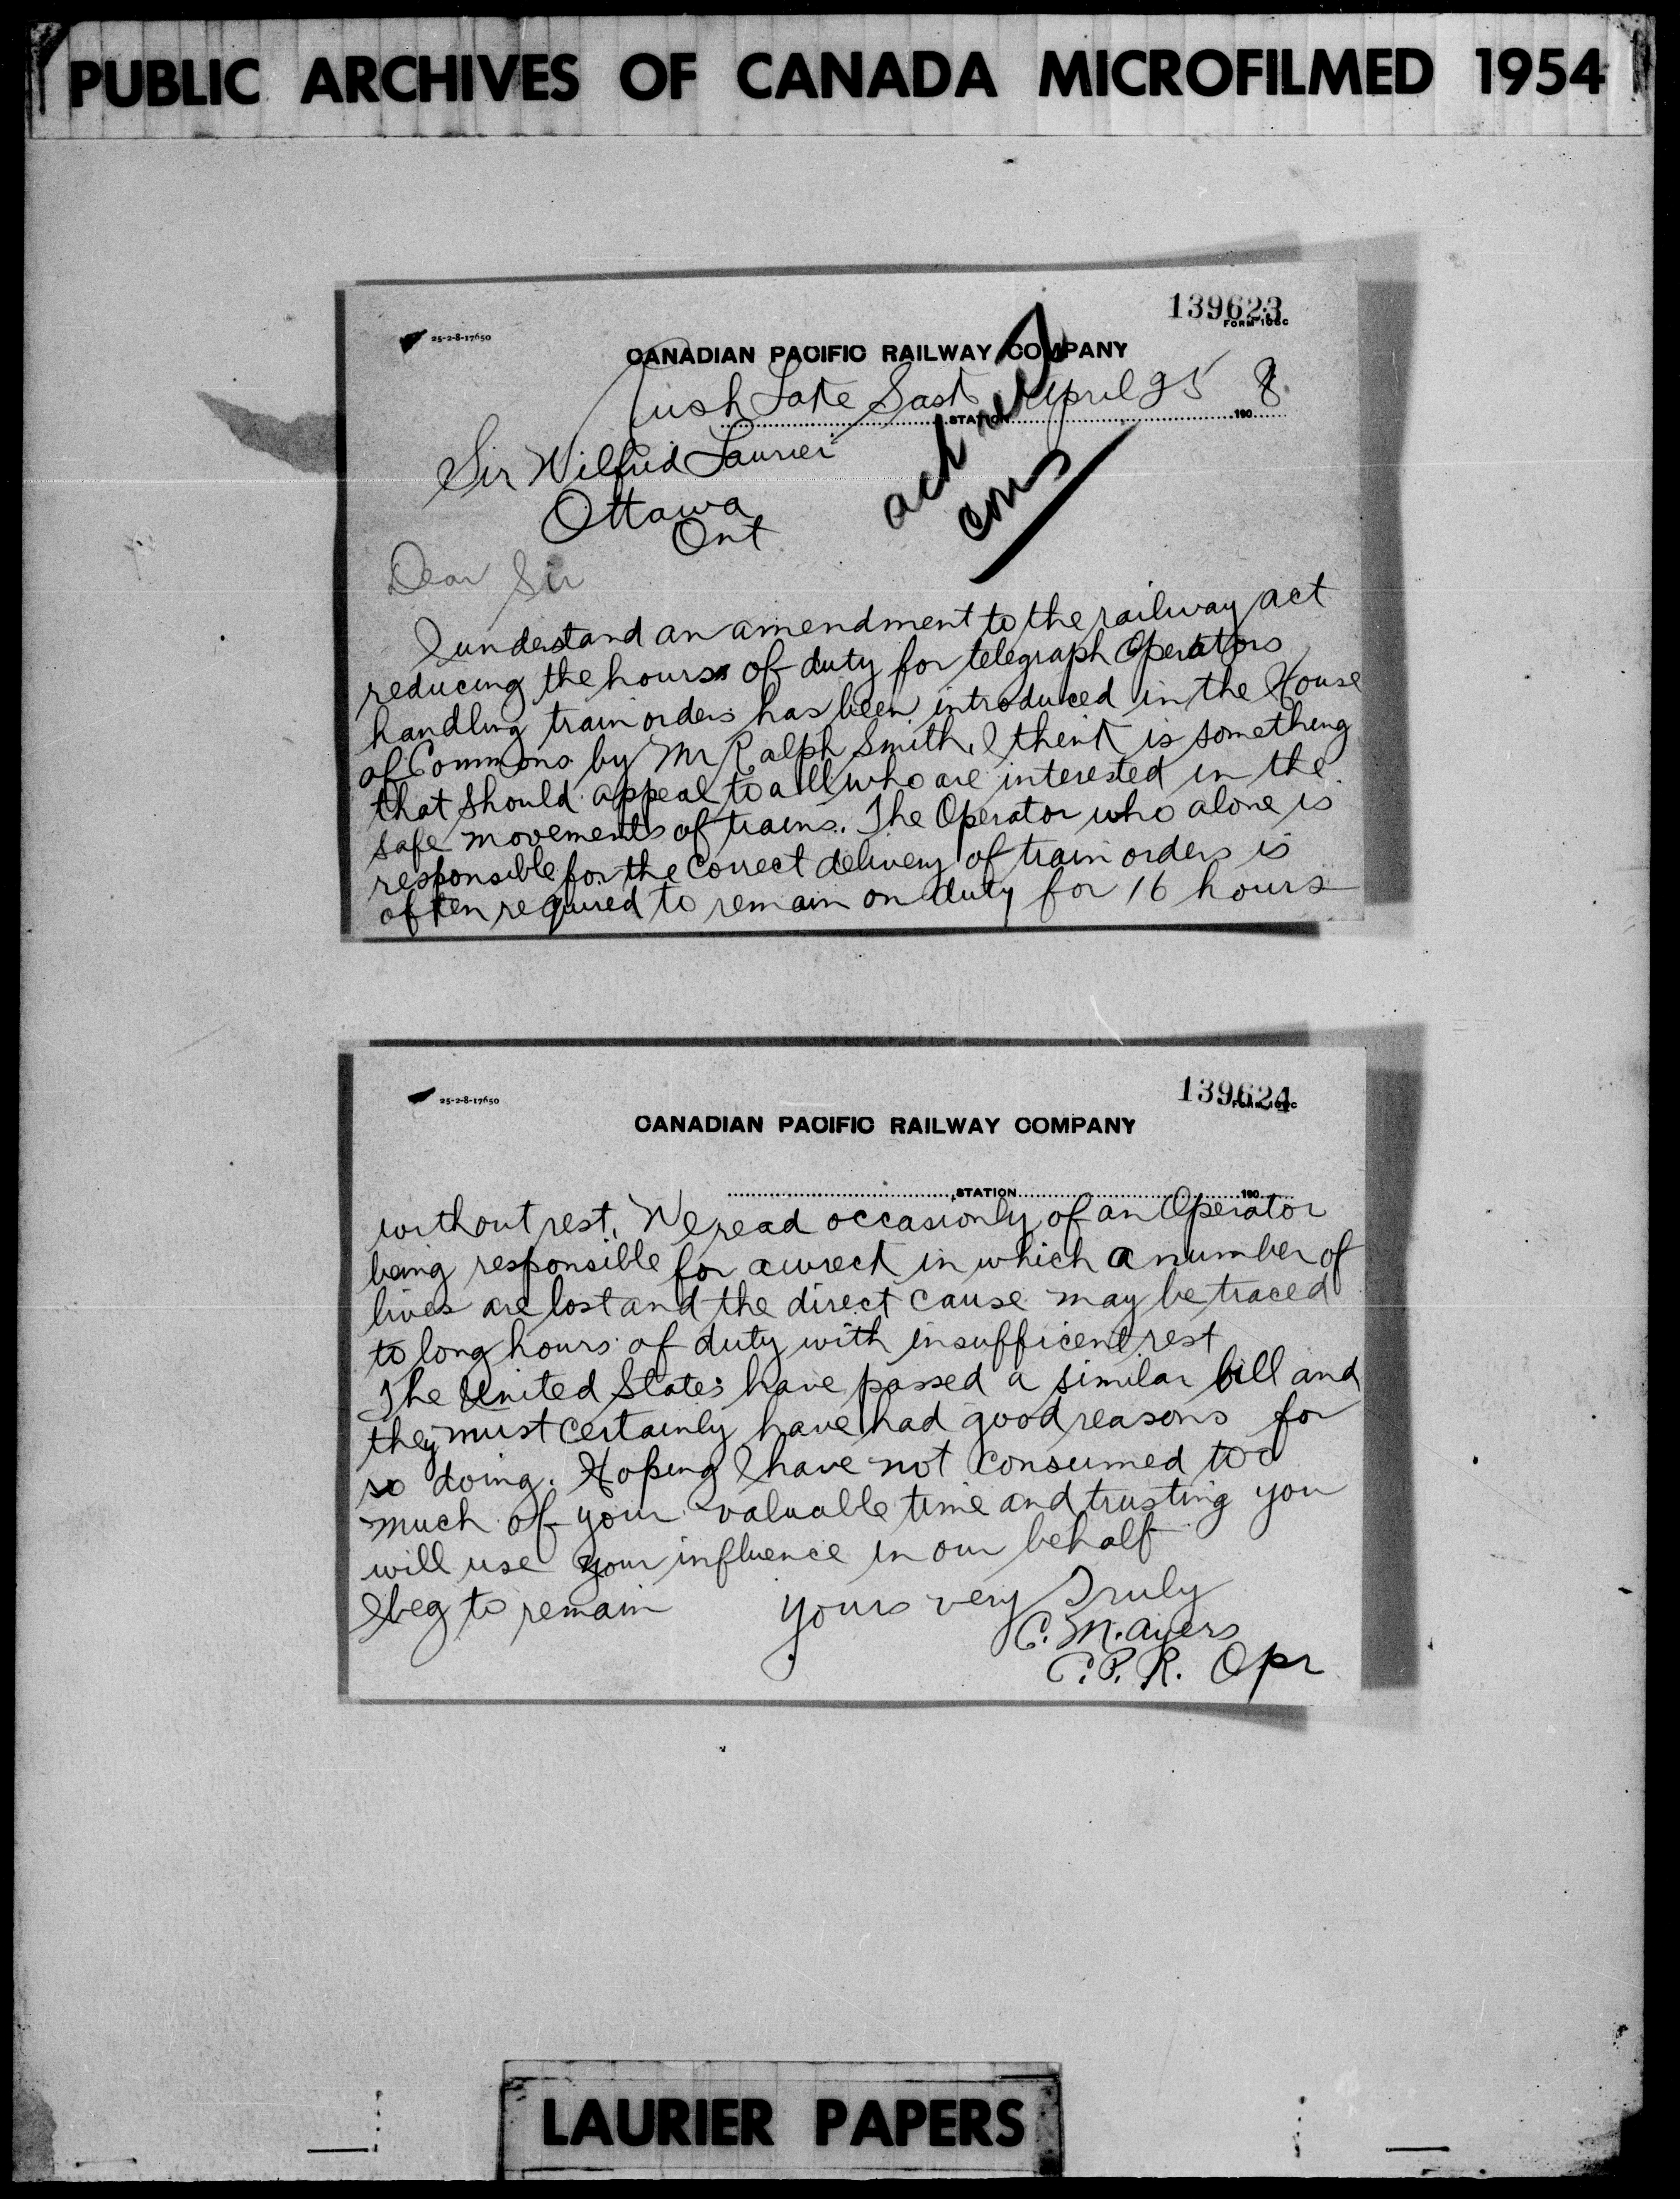 PUBLIC ARCHIVES OF CANADA MICROFILMED 1954
139623
FORM 108C
25-2-8-17650
CANADIAN PACIFIC RAILWAY COMPANY
Rush Lake Sask STATION April 25 190 8
Sir Wilfrid Laurier
Ottawa
Ont
Dear Sir
I understand an amendment to the railway act
reducing the hours of duty for telegraph Operators
handling train orders has been introduced in the House
of Commons by Mr Ralph Smith, I think is something
that should appeal to all who are interested in the
safe movements of trains. The Operator who alone is
responsible for the correct delivery of train orders is
often required to remain on duty for 16 hours
139624
25-2-8-17650
CANADIAN PACIFIC RAILWAY COMPANY
STATION 190
without rest. We read occasionly of an Operator
being responsible for a wreck in which a number of
lives are lost and the direct cause may be traced
to long hours of duty with insufficent rest
The United States have passed a similar bill and
they must certainly have had good reasons for
so doing. Hoping I have not consumed too
much of your valuable time and trusting you
will use your influence in our behalf
I beg to remain yours very Truly
C. M. Ayers
C. P. R. Opr
LAURIER PAPERS